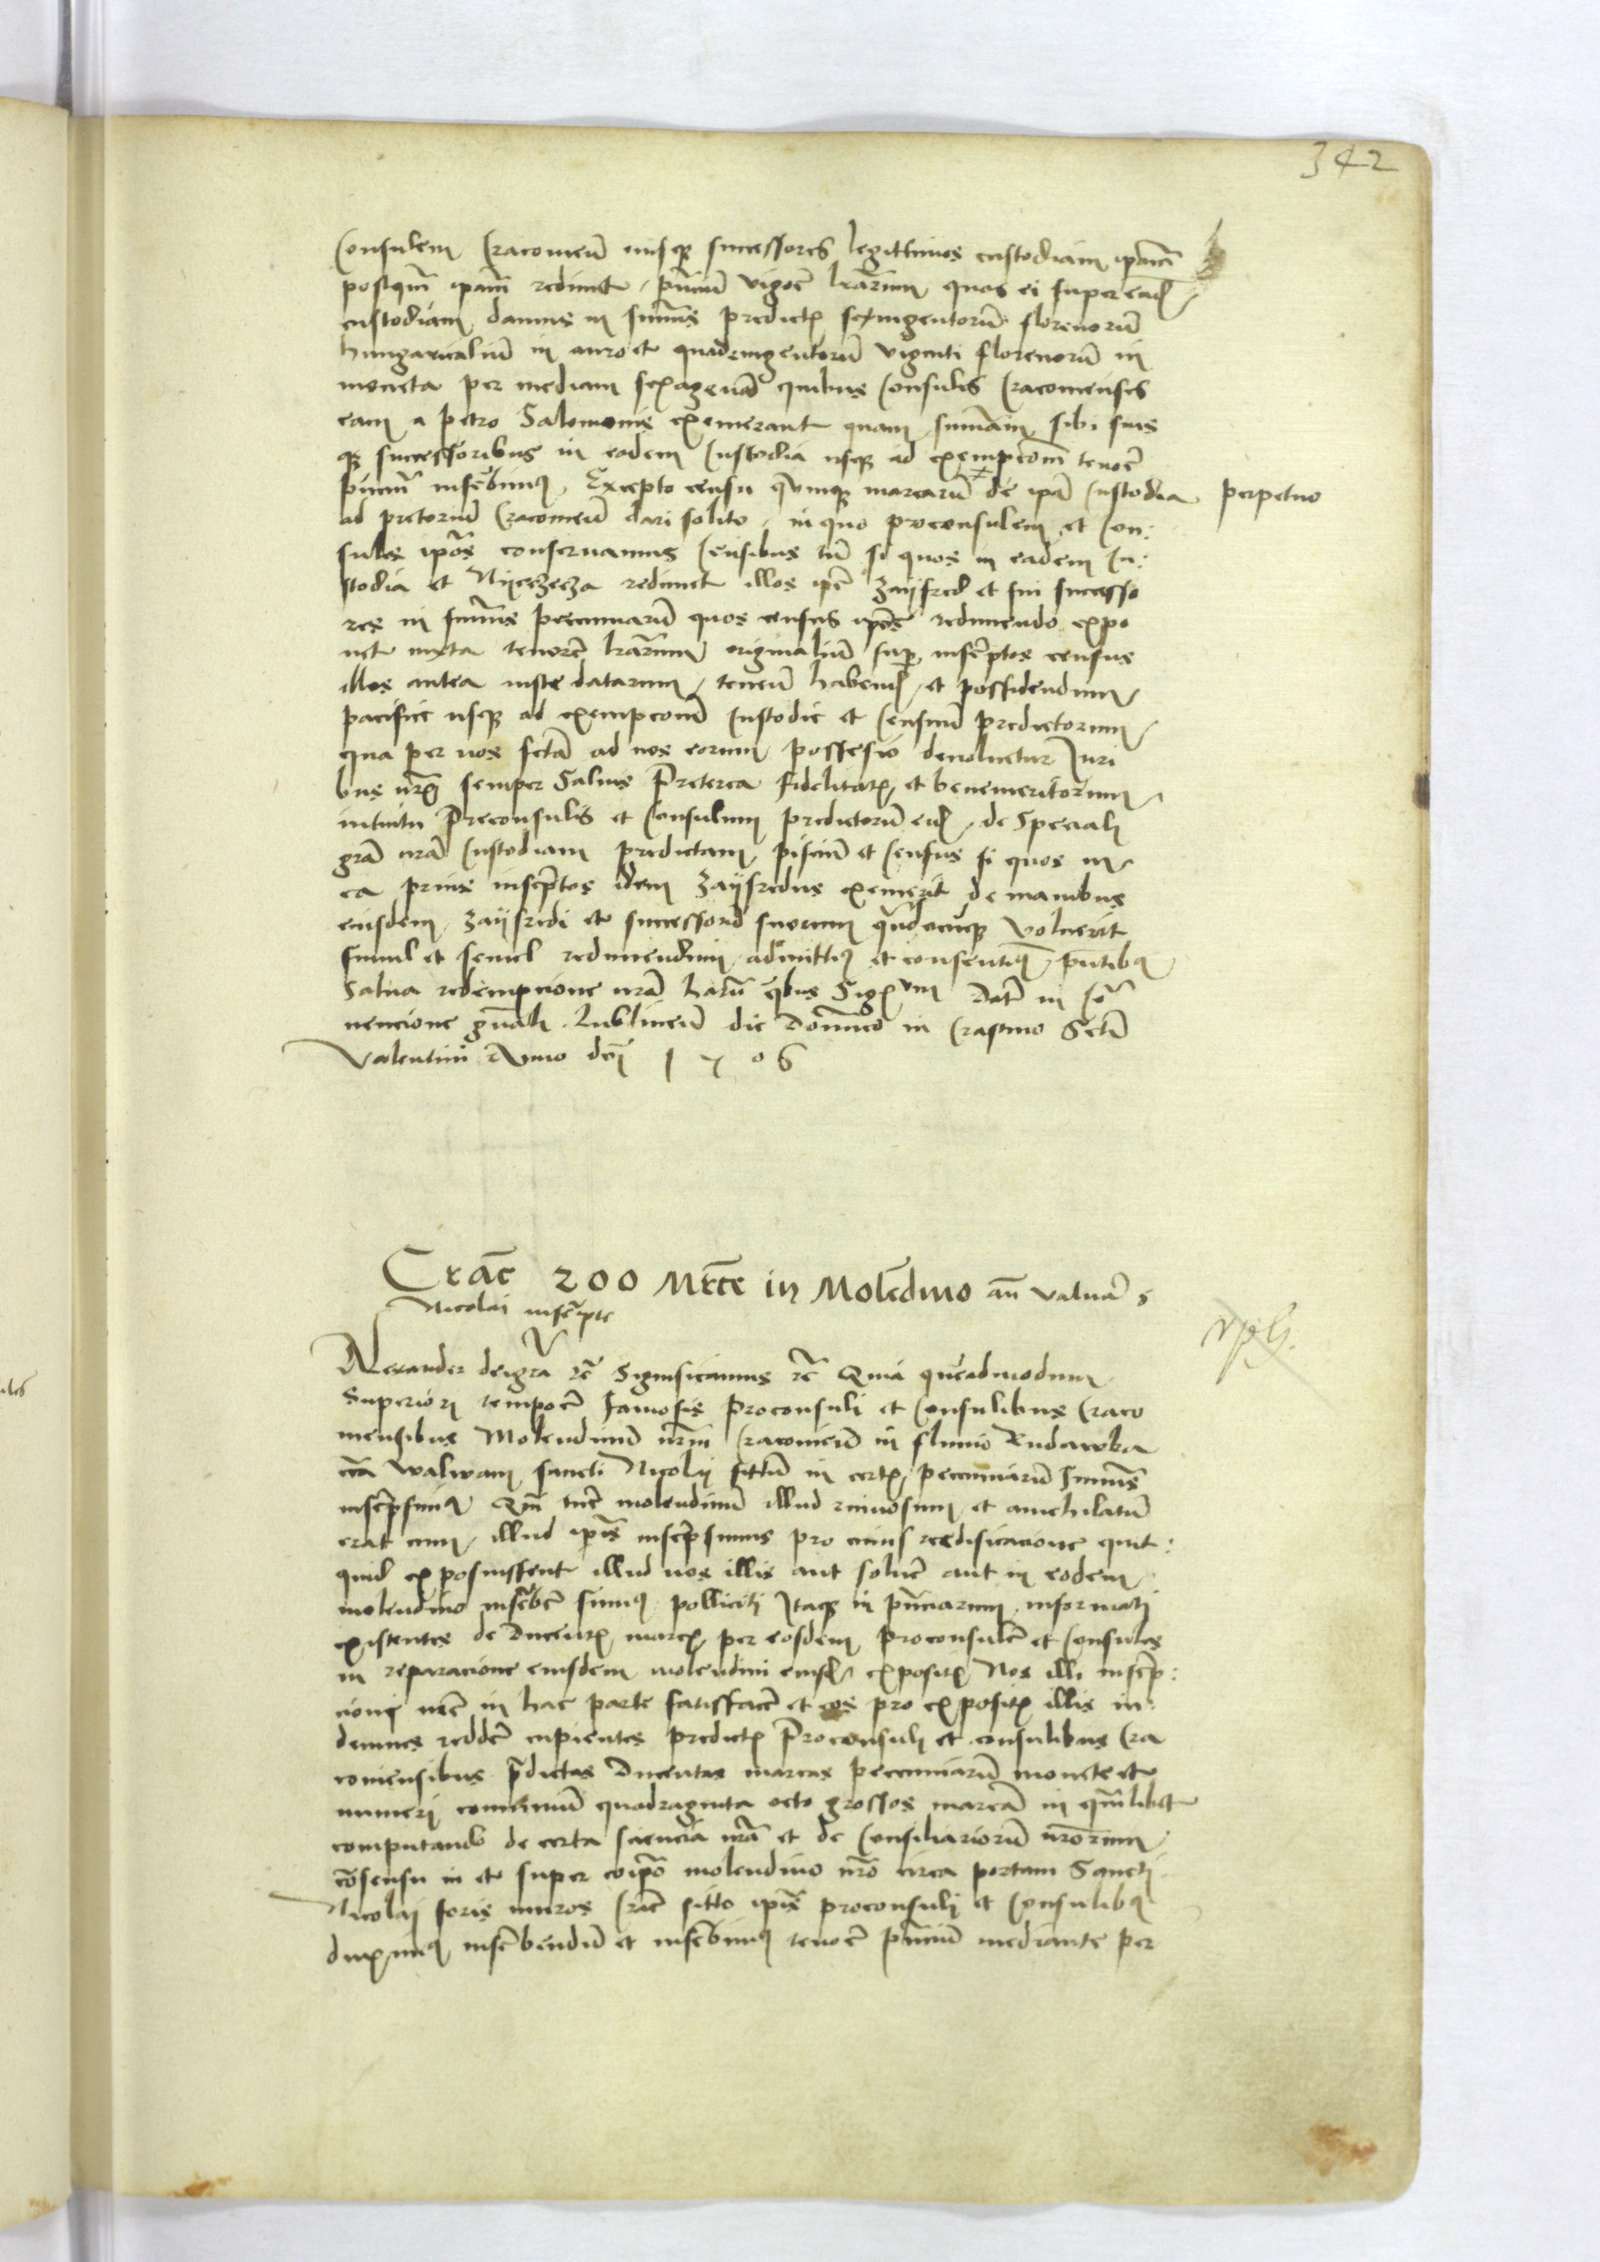 342
Consulem Cracovieñ eiusqʒ successores legittimos custodiam ipam
postqm̃ ipam redimet, pñciũ vigore lrarum quas ei super eadẽ
custodiam damus in sum̃is predictis sexingentorũ florenorũ
hungaricaliũ in auro et quadringentorũ viginti florenorũ in
moneta per mediam sexagenã quibus Consules Cracovienses
eam a Petro Salomonis exemerant quam sum̃am sibi suis
qʒ successoribus in eadem Custodia usqʒ ad exempcom̃ tenore
pñciũ inscribimus, Excepto censu quinqʒ marcarũ de ipa Custodia perpetuo
ad pretoriũ Cracovieñ dari solito, in quo proconsulem et Con:
sules ipos conservamus Censibus tñ si quos in eadem Cu:
stodia et redimet illos ipe Zayfred et sui successo
res in sum̃is pecuniarũ quos census ipos redimendo expo
net iuxta tenorẽ lrarum originaliũ sup inscriptos census
illos antea iuste datarum, teneñ habenđ et possidendum
pacifice usqʒ ad exempconẽ Custodie et Censuũ predictorum
qua per nos fcta ad nos eorum possessio devolvetur Juri
bus nris semper Salvis Preterea fidelitatis et benemeritorum
intuitu Preconsulis et Consulum predictorũ eis de Speciali
gra nra Custodiam predictam, piscinã et Census si quos in
ea prius inscriptos idem Zayfredus exemerit de manibus
eiusdem Zayfredi et successorũ suorum quandocũqʒ voluerit
simul et semel redimendum admittimus et consentimus pñtibus
Salva redempcione nra harũ qbus Sigillum Dat in Cõ
vencione gñali Lublineñ die Dominico in Crastino Scti
Valentini Anno dni 1506
Crac 200 Mrce in Molendino añ valvã S
Nicolai inscripte
Alexander dei gra rc̃ Significamus rc̃ Quia quẽadmodum
Superiori tempore famosis proconsuli et Consulibus Craco
viensibus Molendinũ nrm̃ Cracovieñ in fluvio Rudawka
circa walwam sancti Nicolai sitũ in certis pecuniarũ sum̃is
inscripsimus Qm̃ tũc molendinũ illud ruinosum et anichilatũ
erat cum illud ipis inscripsimus pro cuius reedificacione quit:
quid exposuissent illud nos illis aut solvere aut in eodem
molendino inscribere sumus polliciti Itaqʒ in pñciarum informati
existentes de Ducentis marcis per eosdem proconsulẽ et Consules
in reparacione eiusdem molendini expositis Nos illi inscrip:
cioni nre in hac parte satisfacere et eos pro expositis illis in:
demnes reddere cupientes predictis Proconsuli et consulibus Cra
coviensibus pdictas Ducentas marcas pecuniarũ monete et
numeri com̃uniũ quadraginta octo grossos marcã in qm̃libet
computando de certa sciencia nra et de Consiliariorũ nrorum
cõsensu in et super toto ipo molendino nro circa portam Sancti
Nicolai foris muros Crac sitto ipis proconsuli et Consulibus
duximus inscribendũ et inscribimus tenore pñciũ mediante per